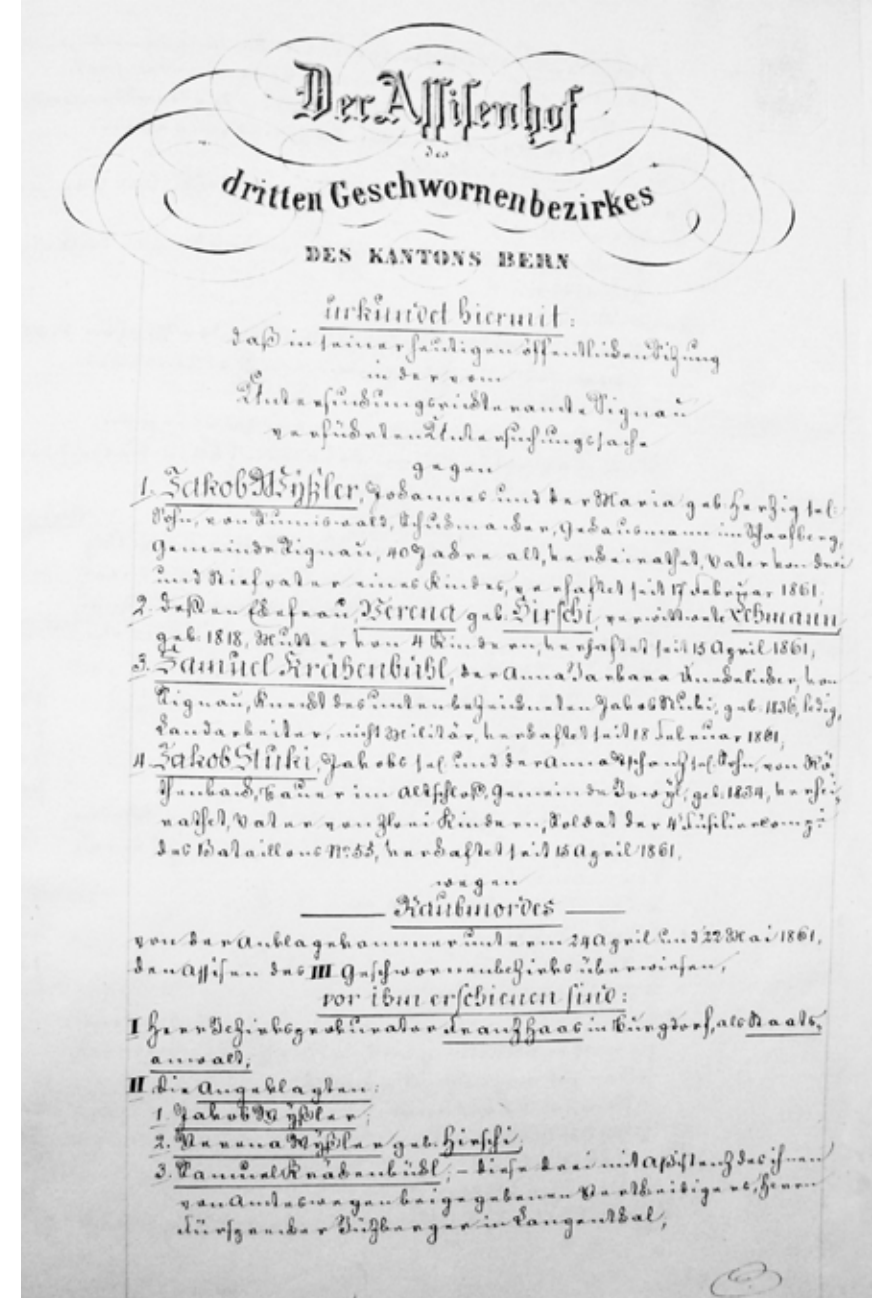 Der Assisenhof
des
dritten Geschwornenbezirkes
DES KANTONS BERN
urkundet hiermit:
daß in seiner heutigen öffentlichen Sitzung
in der vom
Untersuchungsrichteramte Signau
verführten Untersuchungssache
gegen
1. Jakob Wyßler, Johannes und der Maria geb. Herzig sel.
Sohn, von Sumiswald, Schuhmacher, Gehausmann im Schafberg,
Gemeinde Signau, 40 Jahre alt, verheirathet, Vater von drei
und Stiefvater eines Kindes, verhaftet seit 17 Februar 1861,
2. deßen Ehefrau, Verena geb. Hirschi, verwittwete Lehmann,
geb. 1818, Mutter von 4 Kindern, verhaftet seit 15 April 1861,
3. Samuel Krähenbühl, der Anna Barbara Unehelicher, von
Signau, Knecht des unten bezeichneten Jakob Stuki, geb. 1836, ledig,
Landarbeiter, nicht Militär, verhaftet seit 18 Februar 1861,
4. Jakob Stuki, Jakobs sel. und der Anna Tschanz sel. Sohn, von Rö,
thenbach, Bauer im Altschloß, Gemeinde Bowyl, geb. 1834, verhei,
rathet, Vater von zwei Kindern, Soldat der 4t Füsiliercomp:
des Bataillons No 53, verhaftet seit 15 April 1861,
wegen
Raubmordes
von der Anklagekammer unterm 24 April und 22 Mai 1861,
den Assisen des III Geschwornenbezirks überwiesen,
vor ihm erschienen sind:
I Herr Bezirksprokurator Franz Haas in Burgdorf, als Staats,
anwalt,
II die Angeklagten:
1. Jakob Wyßler,
2. Verena Wyßler geb. Hirschi,
3. Samuel Krähenbühl, – diese drei mit Assistenz des ihnen
von Amteswegen beigegebenen Vertheidigers, Herrn
Fürsprecher Bützberger in Langenthal,